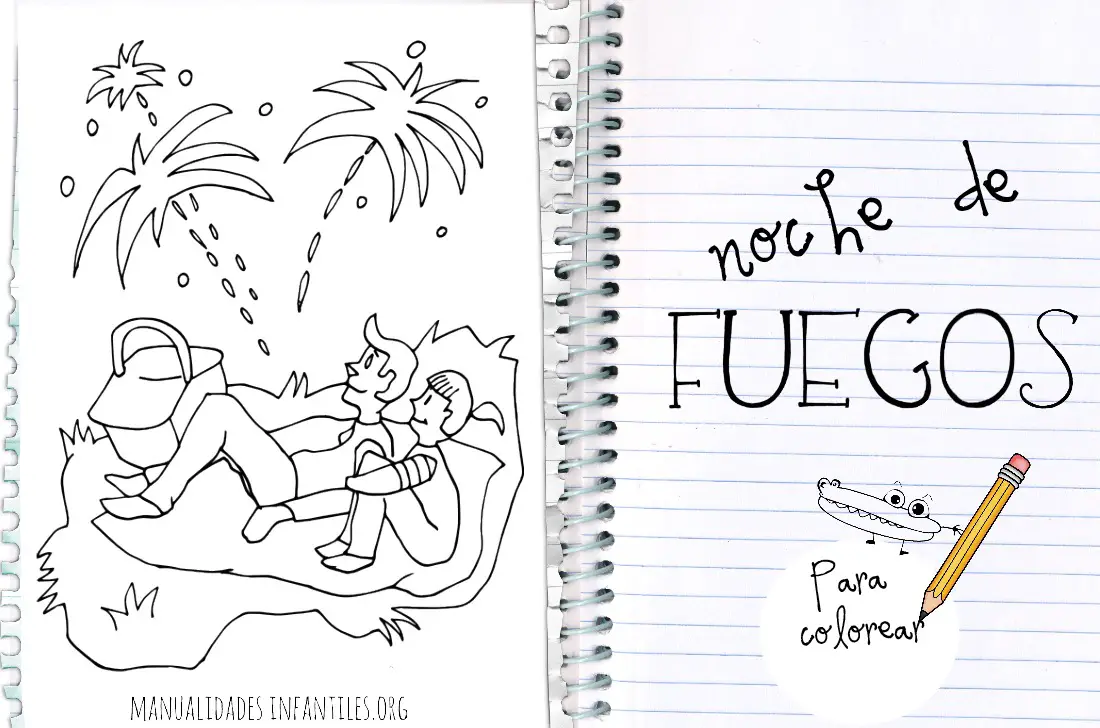 noche de
FUEGOS
Para
colorear
MANUALIDADES INFANTILES.ORG